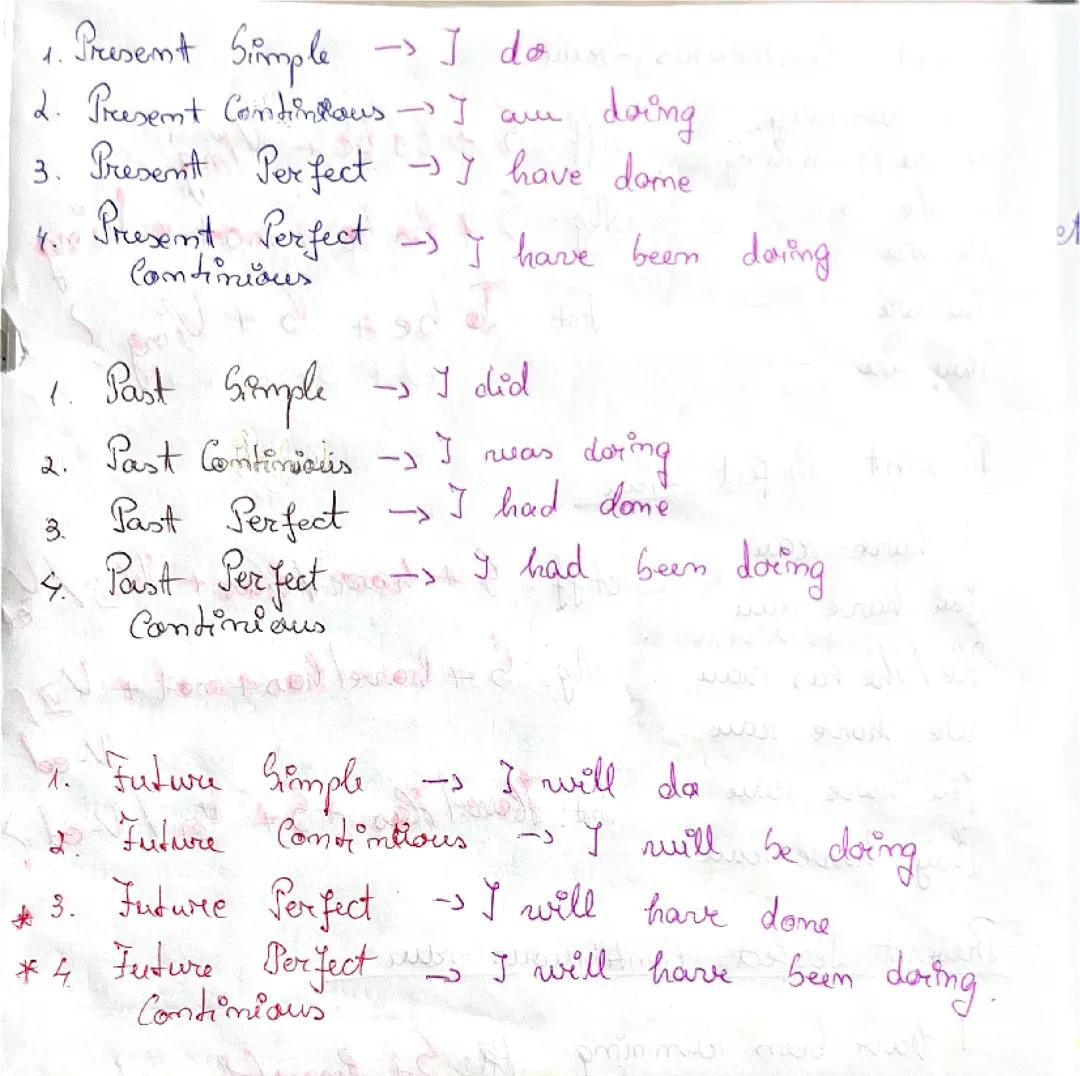 1. Present Simple → I do
2. Present Continious → I am doing
3. Present Perfect → I have done
4. Present Perfect → I have been doing
Continious
1. Past Simple → I did
2. Past Continious → I was doing
3. Past Perfect → I had done
4. Past Perfect → I had been doing
Continious
1. Future Simple → I will do
2. Future Continious → I will be doing
* 3. Future Perfect → I will have done
* 4 Future Perfect → I will have been doing.
Continious